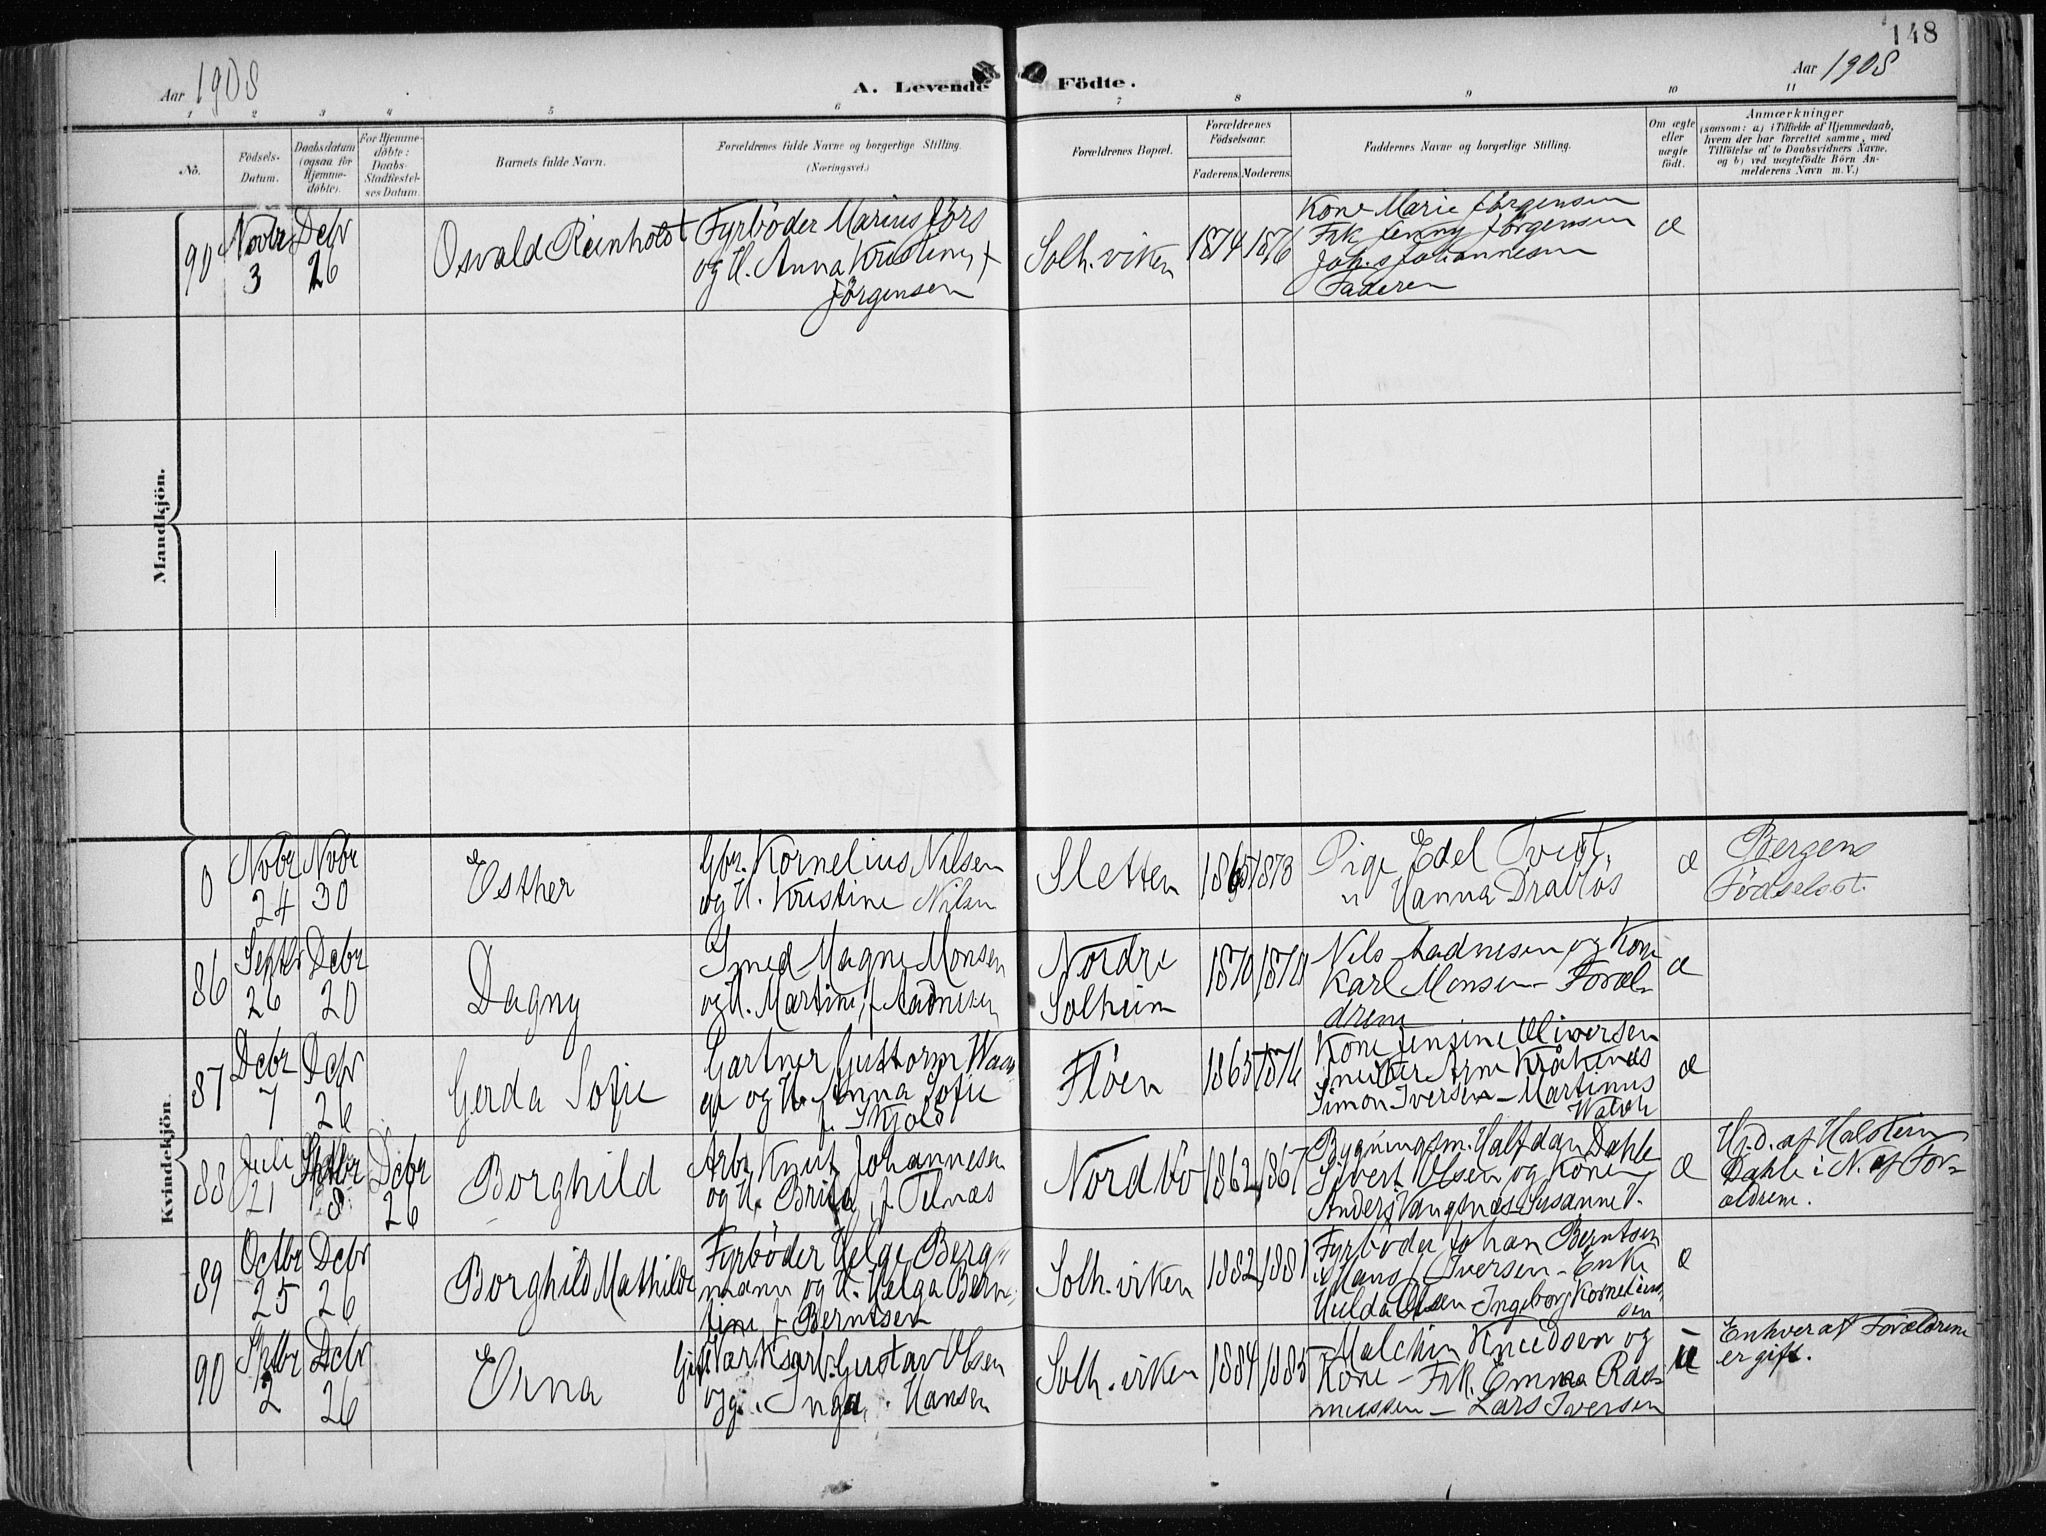 148
Aar 1908
A. Levende Födte.
Aar 1908
1 2 3 4 5 6 7 8 9 10 11
No.
Födsels-
Datum.
Daabsdatum
(ogsaa for
Hjemme-
döbte).
For Hjemme-
döbte:
Daabs-
Stadfæstel-
ses Datum.
Barnets fulde Navn.
Forældrenes fulde Navne og borgerlige Stilling.
(Næringsvei.)
Forældrenes Bopæl.
Forældrenes
Födselsaar.
Faderens. Moderens.
Faddernes Navne og borgerlige Stilling.
Om ægte
eller
uægte
födt.
Anmærkninger
(saasom: a) i Tilfælde af Hjemmedaab,
hvem der har forrettet samme, med
Tilföielse af to Daabsvidners Navne,
og b) ved uægtefödte Börn An-
melderens Navn m. V.)
Mandkjön.
90
Novbr
3
Decbr
26
Osvald Reinholdt
Fyrbøder Marius Jörg
og H. Anna Kristine f
Jörgensen
Solh.viken
1874
1876
Kone Marie Jörgensen
Frk Jenny Jörgensen
Johs Johannesen
Faderen
æ
Kvindekjön.
0
Novbr
24
Novbr
30
Esther
Kornelius Nilsen
og H. Kristine Nilsen
Sletten
1865
1873
Pige Edel Tveit,
" Hanna Drabløs
æ
Bergens
Fødselsst.
86
Septbr
26
Decbr
20
Dagny
Smed Magne Monsen
og H. Martine f Aadnesen
Nordre
Solheim
1870
1870
Nils Aadnesen og Kone
Karl Monsen - Foræl-
drene
æ
87
Decbr
7
Decbr
26
Gerda Sofie
Gartner Guttorm
og H. Anna Sofie
f. Skjold
Fløen
1865
1876
Kone Jensine Oliversen
Arne Kråkenes
Simon Iversen - Martinus
æ
88
Juli
21
Septbr
8
Decbr
26
Borghild
Arb. Knut Johannesen
og H. Brita f Titnæs
Nordbö
1862
1867
Bygningsm. Halfdan Dahle
Sivert Olsen og Kone
Anders Vangsnes - Susanne V.
æ
H.d. af Halstein
Dahle i N. af For-
ældrene.
89
Octbr
25
Decbr
26
Borghild Mathilde
Fyrbøder Helge Berg-
mann og H. Helga Bern-
tine f Berntsen
Solh.viken
1882
1881
Fyrbøder Johan Berntsen
Hans J Iversen - Enke
Hulda Olsen Ingeborg Kornelius-
sen
æ
90
Septbr
2
Decbr
26
Erna
Gift Værksarb. Gustav Olsen
og g. Inga Hansen
Solh.viken
1884
1885
Melchin Knudsen og
Kone - Frk. Emma Ras-
mussen - Lars Iversen
u
Enhver af Forældrene
er gift.